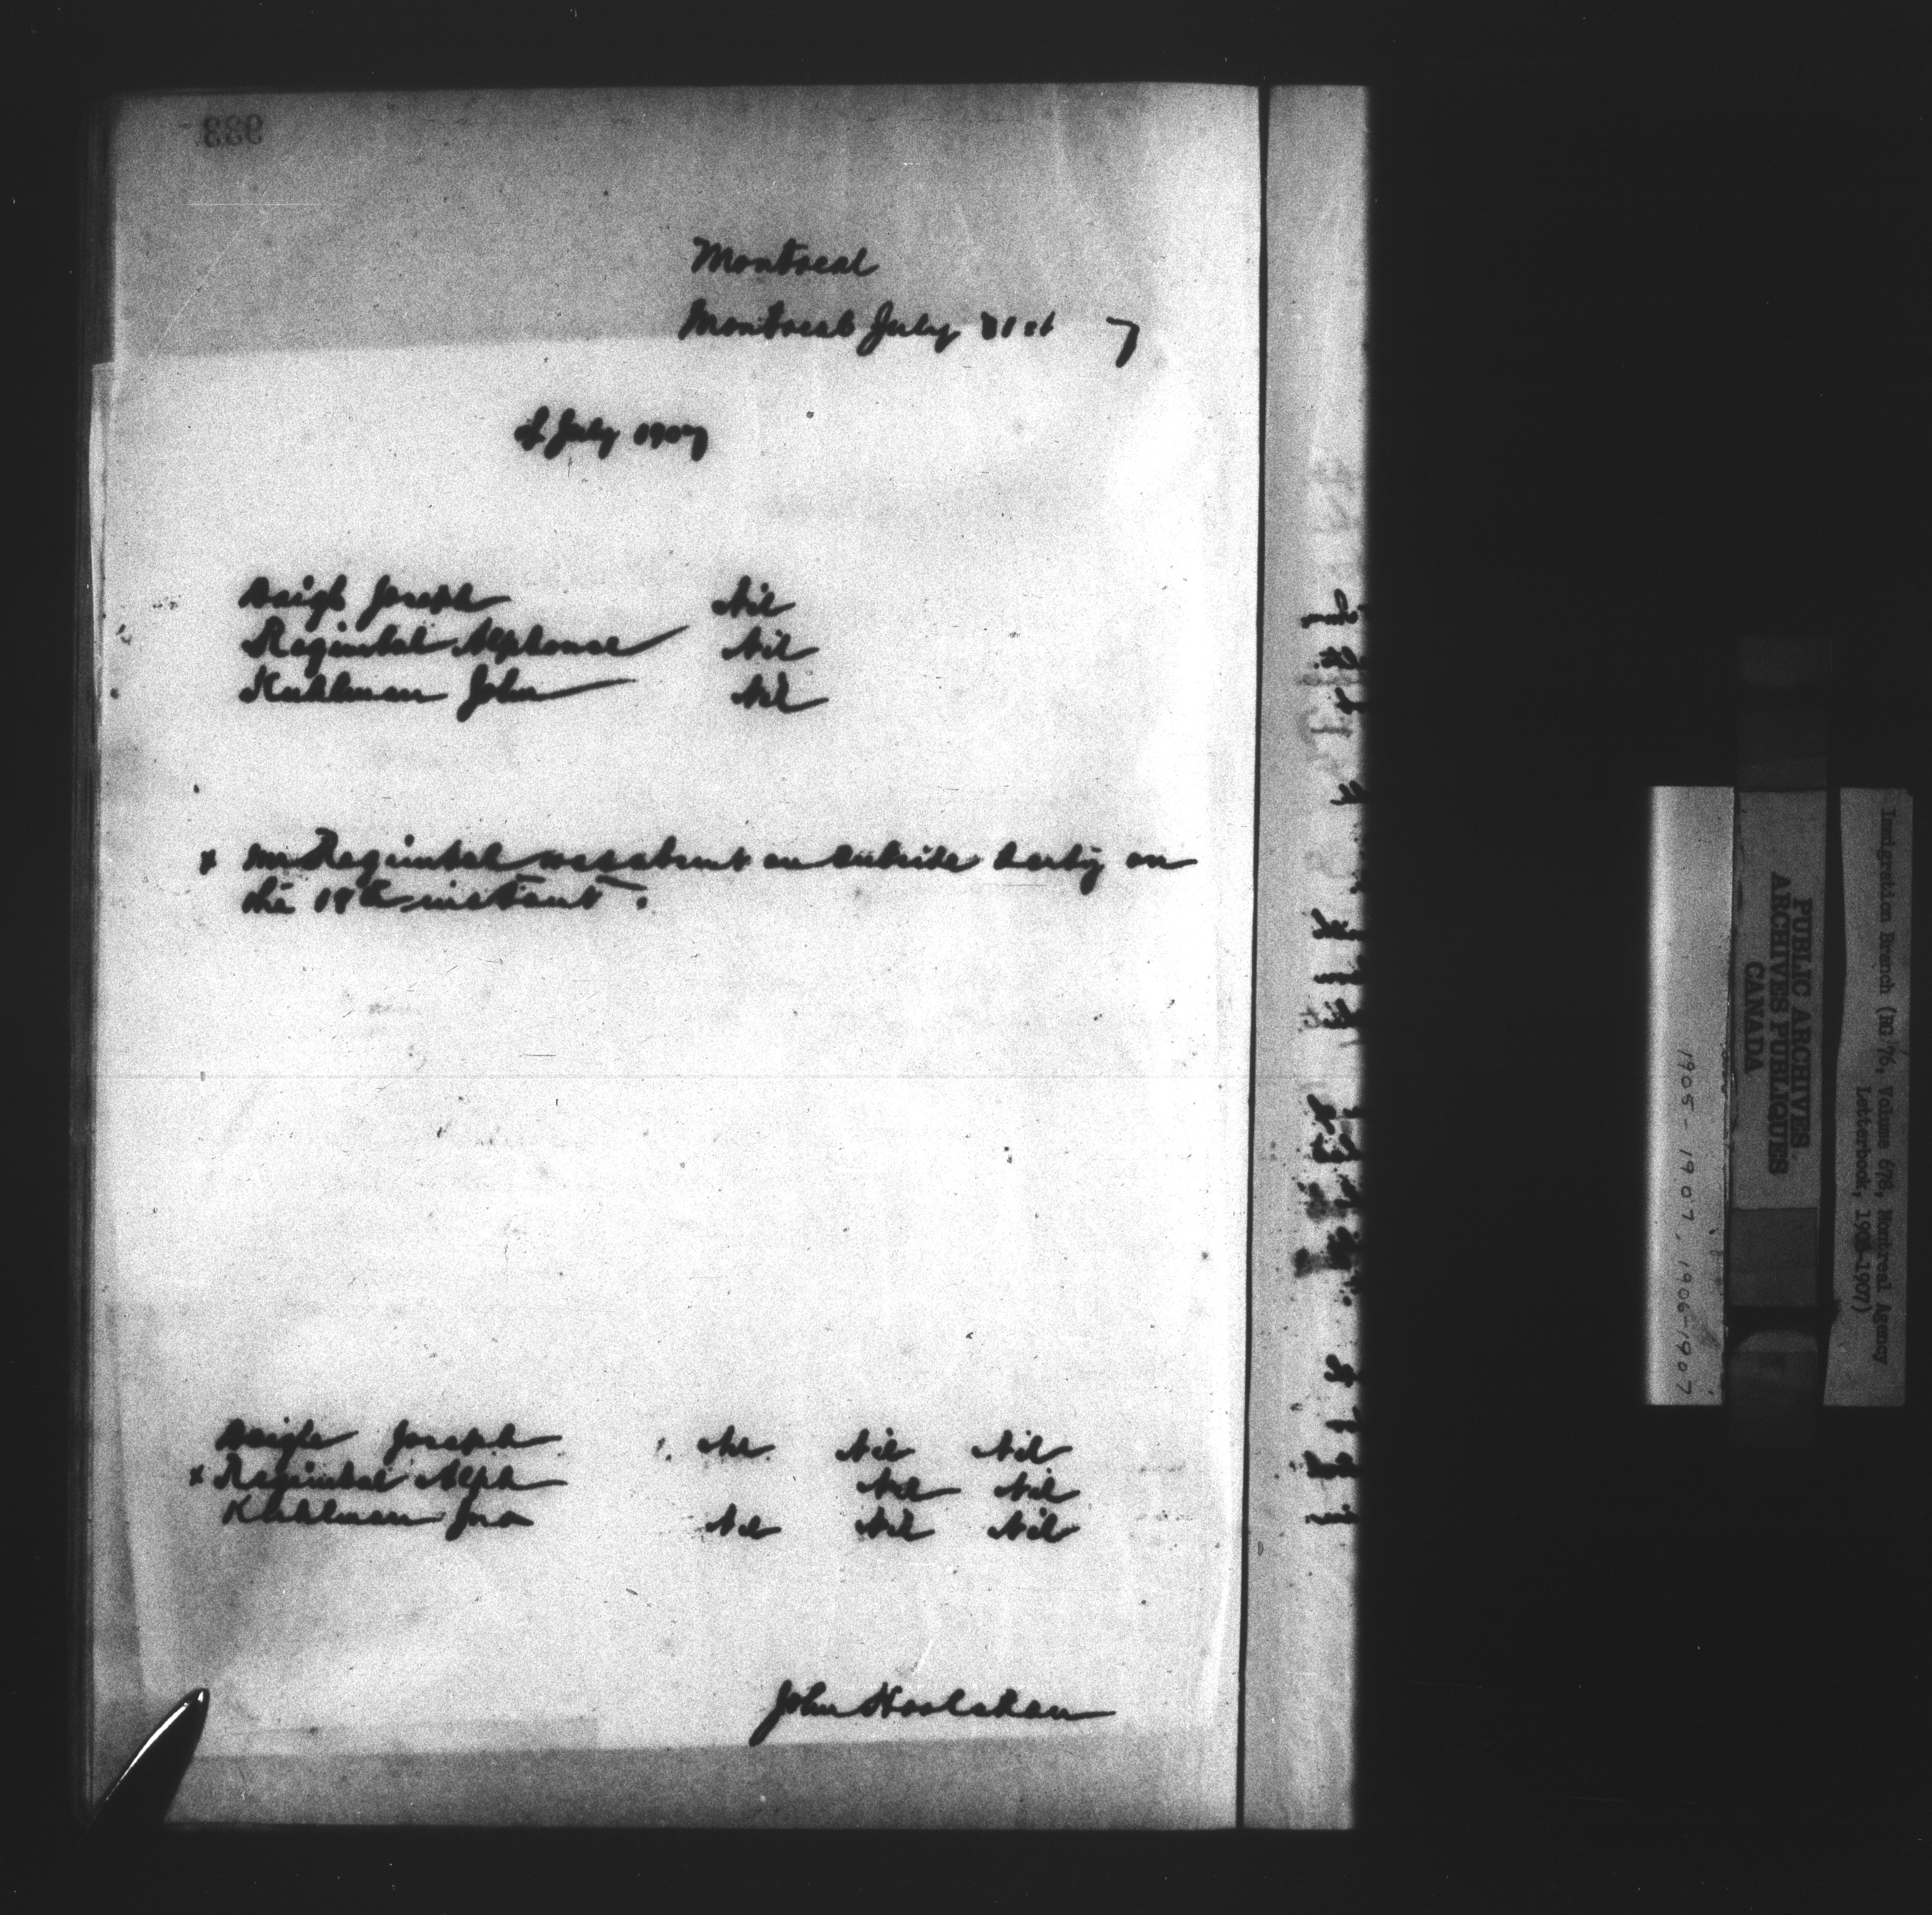 923
Montreal
Montreal July 31st 7
of July 1907
Daigle Joseph Nil
Regimbal Alphonse Nil
Kuhlman John Nil
x Mr Regimbal was absent on outside duty on
the 18th instant.
Daigle Joseph Nil Nil Nil
x Regimbal Alph Nil Nil
Kuhlman Jno Nil Nil Nil
John Hoolahan
1905-1907, 1906-1907
PUBLIC ARCHIVES
ARCHIVES PUBLIQUES
CANADA
Immigration Branch (RG 76, Volume 678, Montreal Agency
Letterbook, 1905-1907)